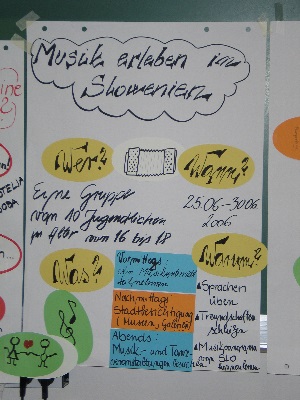 Musik erleben in
Slowenien
Wer?
Wann?
Eine Gruppe
von 10 Jugendlichen
im Alter von 16 bis 18
25.06-30.06
2006
Was?
Warum?
Vormittags:
Nachmittags
Stadtbesichtigung
(Museen, Galerien)
Abends:
Musik- und Tanz-
veranstaltungen besuchen
Sprachen
üben
Freundschaften
schließen
SLO
kennenlernen